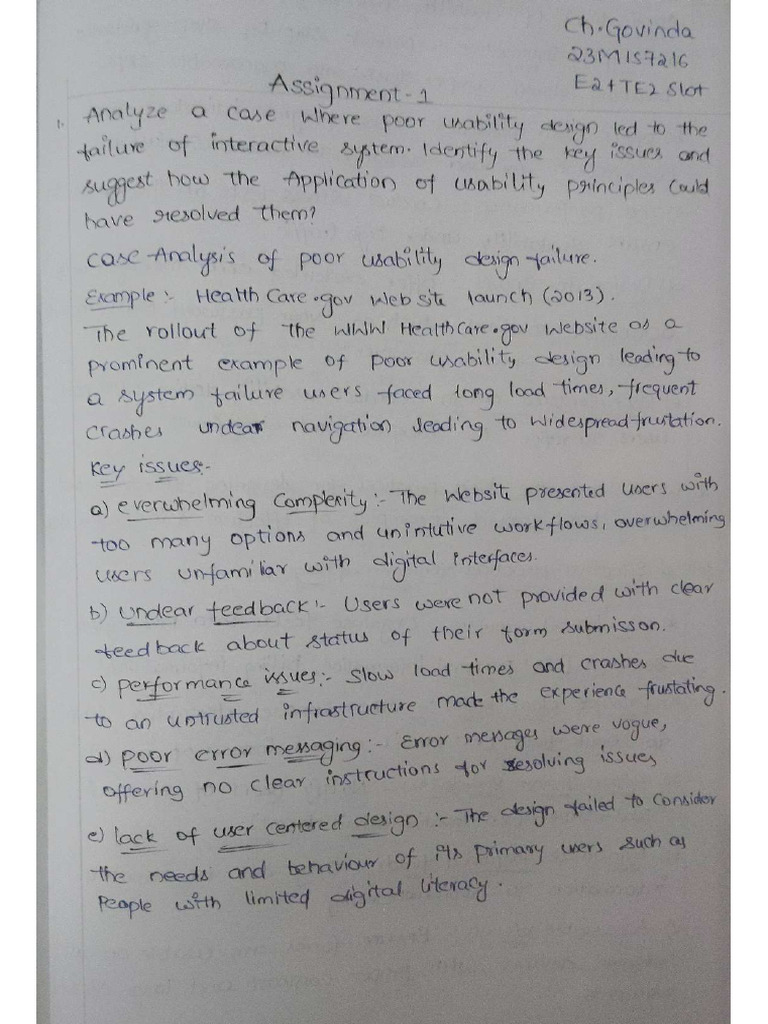 Ch. Govinda
23MIS7216
E2+TE2 Slot
Assignment-1
1. Analyze a case where poor usability design led to the
failure of interactive system. Identify the key issues and
suggest how the Application of usability principles Could
have resolved them?
Case Analysis of poor usability design failure.
Example :- Health Care.gov web site launch (2013).
The rollout of the WWW Healthcare.gov website as a
prominent example of poor usability design leading to
a system failure users faced long load times, frequent
crashes unclear navigation leading to widespread frustation.
Key issues:-
a) everwhelming Complexity :- The website presented users with
too many options and unintutive workflows, overwhelming
users unfamiliar with digital interfaces.
b) unclear feedback :- Users were not provided with clear
feedback about status of their form submisson.
c) performance issues:- Slow load times and crashes due
to an untrusted infrastructure made the experience frustating.
d) poor error messaging :- Error messages were vogue,
offering no clear instructions for resolving issues
e) lack of user centered design :- The design failed to consider
the needs and behaviour of its primary users such as
People with limited digital literacy.